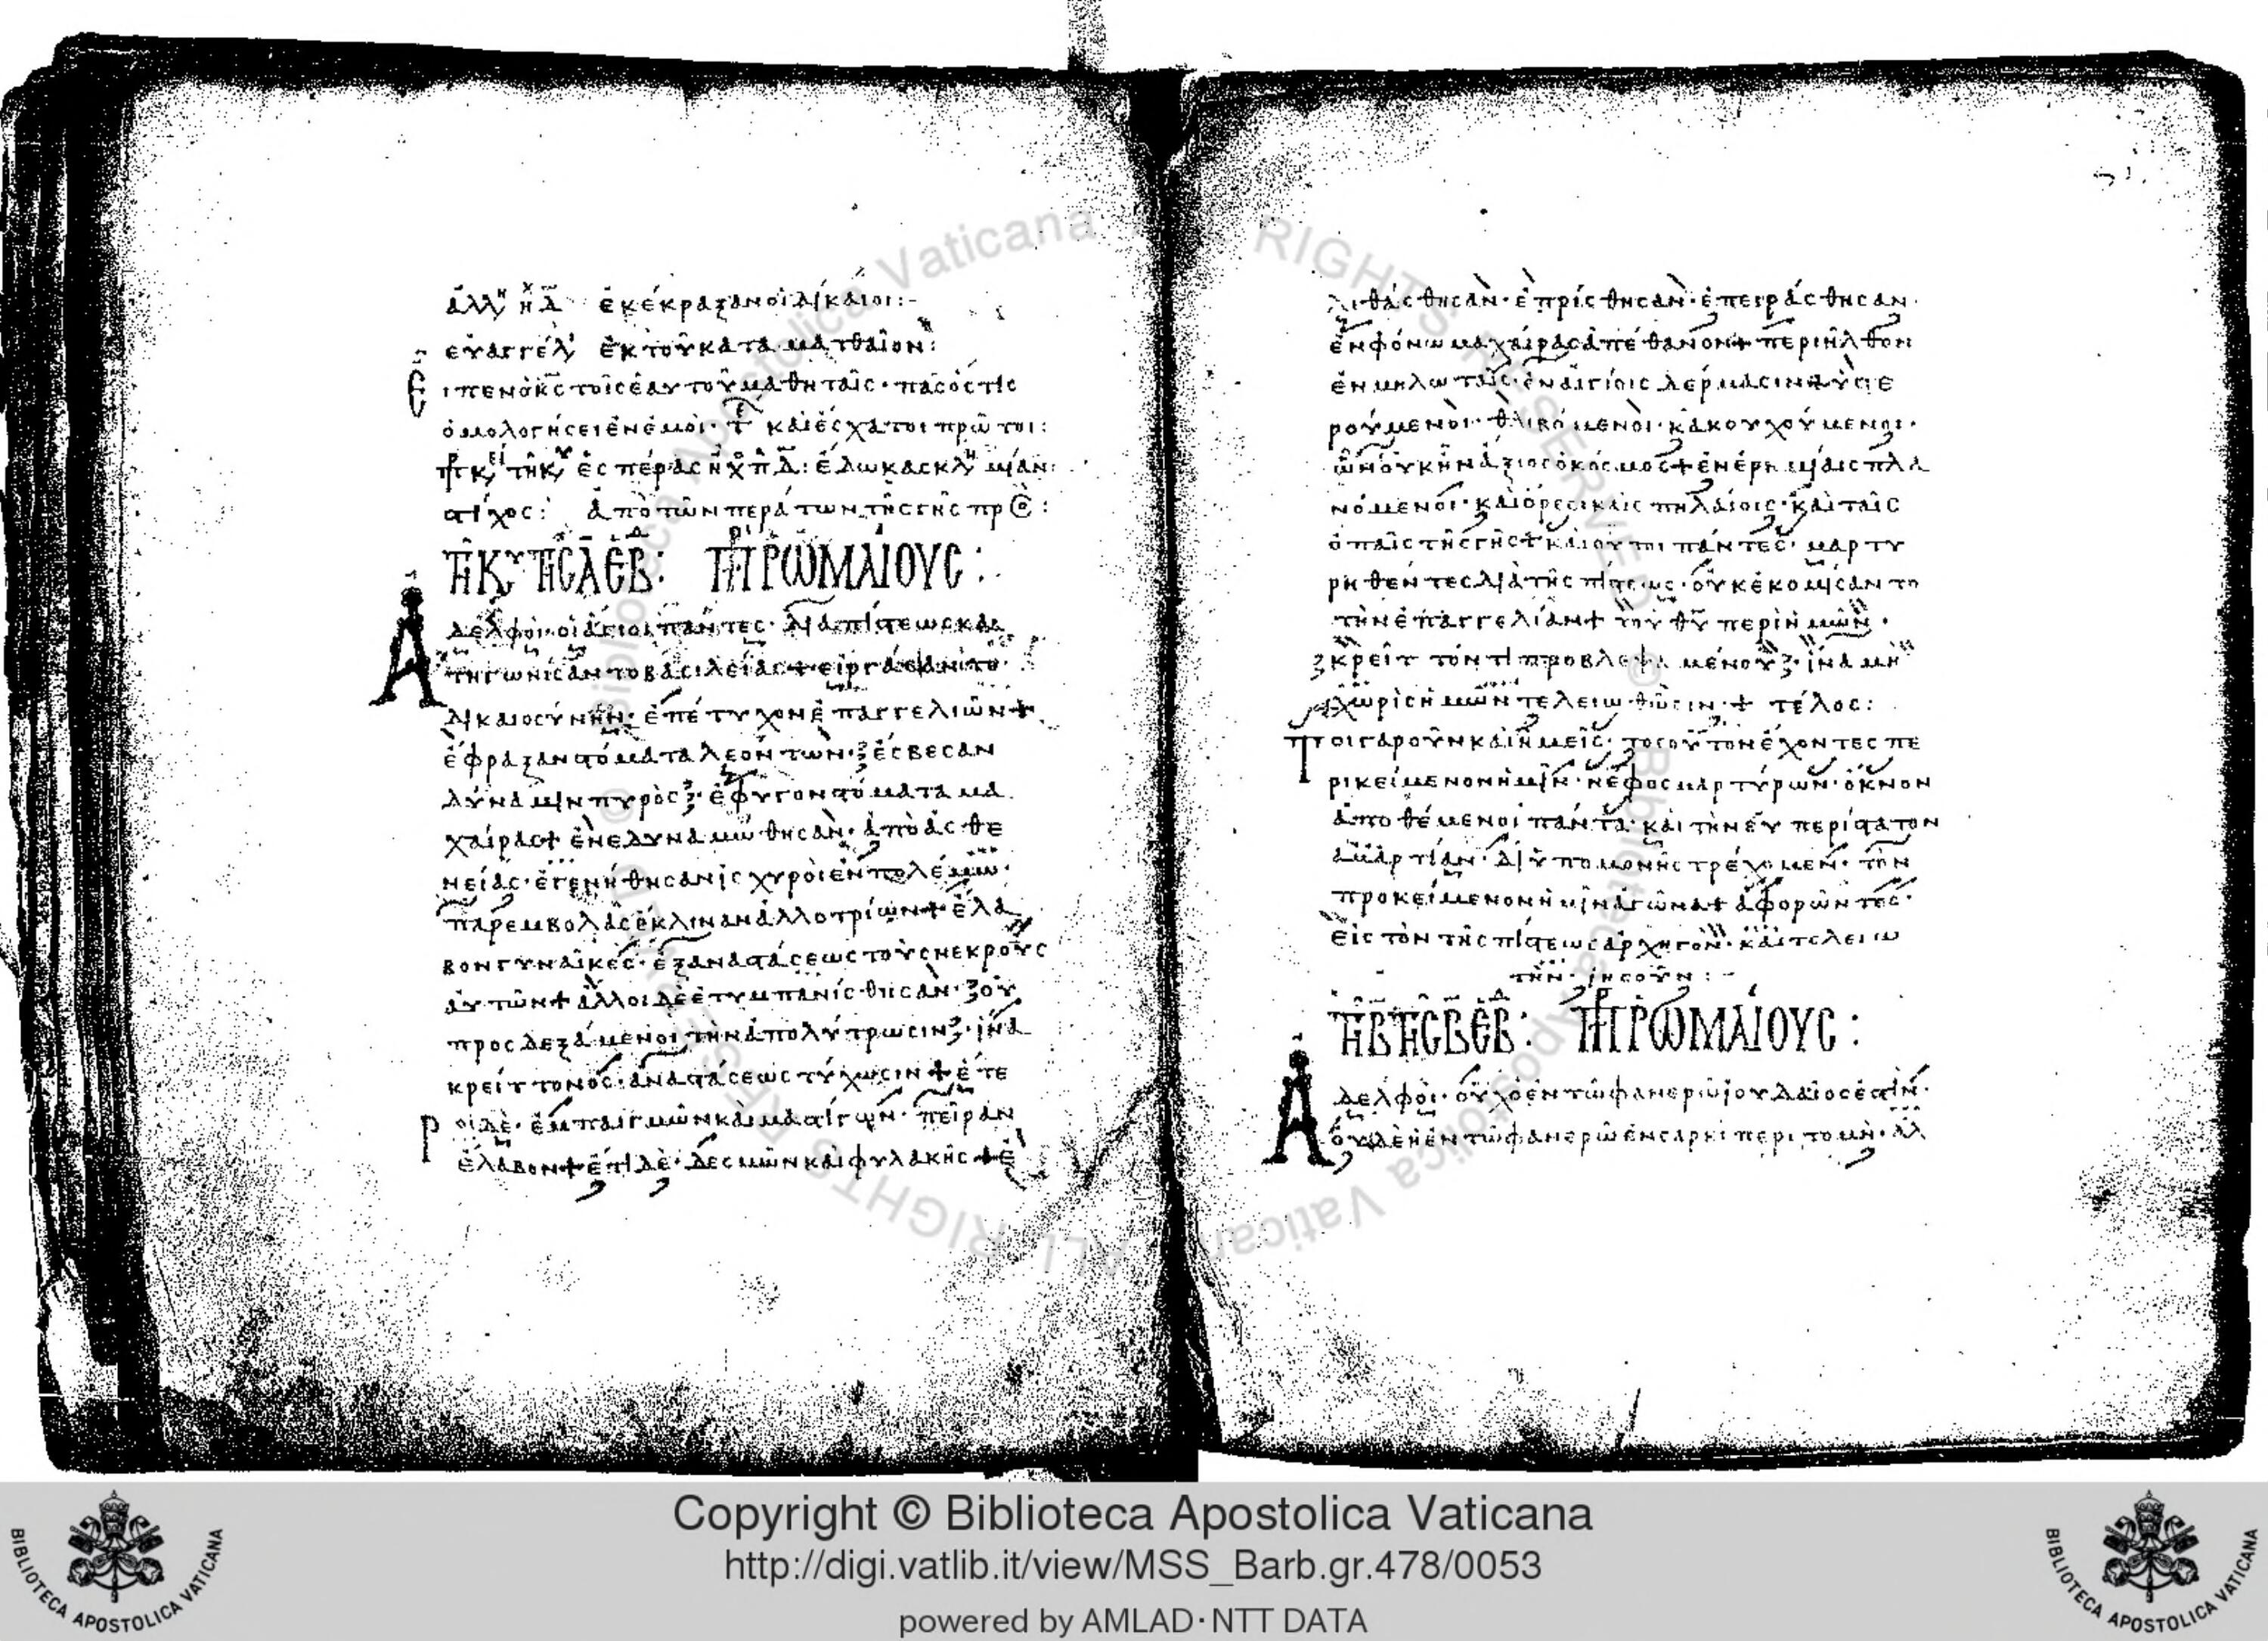 ἀλλη ἦχ δ ἐκέκραξαν οἱ δίκαιοι:-
εὐαγγέλ ἐκ τοῦ κατὰ ματθαῖον:
Εἶπεν ὁ κς τοῖς ἑαυτοῦ μαθηταῖς· πᾶς ὅστις
ὁμολογήσει ἐν ἐμοί· καὶ ἔσχατοι πρῶτοι:
κυ ἑσπέρας ἦχ πδ: ἔδωκας κλη μίαν:
στίχος: ἀπὸ τῶν περάτων τῆς γῆς πρ
ΡΩΜΑΙΟΥC:
Ἀδελφοί· οἱ ἅγιοι πάντες· διὰ πίστεως κα
τηγωνίσαντο βασιλείας + εἰργάσαντο
δικαιοσύνην· ἐπέτυχον ἐπαγγελιῶν +
ἔφραξαν στόματα λεόντων· ἔσβεσαν
δύναμιν πυρός· ἔφυγον στόματα μα
χαίρας + ἐνεδυναμώθησαν· ἀπὸ ἀσθε
νείας· ἐγενήθησαν ἰσχυροὶ ἐν πολέμω·
παρεμβολὰς ἔκλιναν ἀλλοτρίων + ἔλα
βον γυναῖκες· ἐξ ἀναστάσεως τοὺς νεκροὺς
αὐτῶν + ἄλλοι δὲ ἐτυμπανίσθησαν· οὐ
προσδεξάμενοι τὴν ἀπολύτρωσιν· ἵνα
κρείττονος· ἀναστάσεως τύχωσιν + ἕτε
ροι δὲ· ἐμπαιγμῶν καὶ μαστίγων· πεῖραν
ἔλαβον + ἔτι δὲ· δεσμῶν καὶ φυλακῆς + ἐ
λιθάσθησαν· ἐπρίσθησαν· ἐπειράσθησαν·
ἐν φόνω μαχαίρας ἀπέθανον + περιῆλθον
ἐν μηλωταῖς· ἐν αἰγίοις δέρμασιν + ὑστε
ρούμενοι· θλιβόμενοι· κακουχούμενοι·
ὧν οὐκ ἦν ἄξιος ὁ κόσμος + ἐν ἐρημίαις πλα
νόμενοι· καὶ ὄρεσι καὶ σπηλαίοις· καὶ ταῖς
ὀπαῖς τῆς γῆς + καὶ οὗτοι πάντες· μαρτυ
ρηθέντες διὰ τῆς πίστεως· οὐκ ἐκομίσαντο
τὴν ἐπαγγελίαν + τοῦ θυ περὶ ἡμῶν·
κρεῖττόν τι προβλεψαμένου· ἵνα μὴ
χωρὶς ἡμῶν τελειωθῶσιν + τέλος:
Τοιγαροῦν καὶ ἡμεῖς· τοσοῦτον ἔχοντες πε
ρικείμενον ἡμῖν· νέφος μαρτύρων· ὄκνον
ἀποθέμενοι πάντα· καὶ τὴν εὐπερίστατον
ἁμαρτίαν· δι ὑπομονῆς τρέχωμεν· τὸν
προκείμενον ἡμῖν ἀγῶνα + ἀφορῶντες·
εἰς τὸν τῆς πίστεως ἀρχηγὸν· καὶ τελειω
τὴν· ἰησοῦν:-
ΡΩΜΑΙΟΥC:
Ἀδελφοί· οὐχ ὁ ἐν τῶ φανερῶ ἰουδαῖος ἐστίν·
οὐδὲ ἡ ἐν τῶ φανερῶ ἐν σαρκὶ περιτομὴ· ἀλ
Copyright © Biblioteca Apostolica Vaticana
http://digi.vatlib.it/view/MSS_Barb.gr.478/0053
powered by AMLAD·NTT DATA
BIBLIOTECA APOSTOLICA VATICANA
BIBLIOTECA APOSTOLICA VATICANA